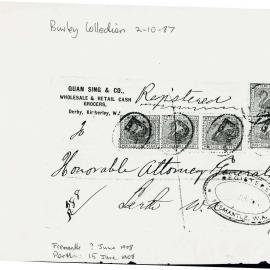 Burley Collection 2-10-87
QUAN SING & CO.,
WHOLESALE & RETAIL CASH
GROCERS,
Derby, Kimberley, W.A.
Registered
To
Honorable Attorney General
Perth W.A.
REGISTERED
FREMANTLE, W.A.
Fremantle ? June 1908
Perth 15 June 1908